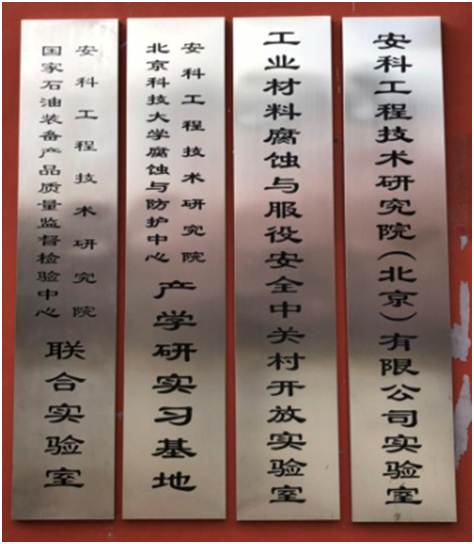 安科工程技术研究院（北京）有限公司实验室
工业材料腐蚀与服役安全中关村开放实验室
安科工程技术研究院
北京科技大学腐蚀与防护中心
产学研实习基地
安科工程技术研究院
国家石油装备产品质量监督检验中心
联合实验室